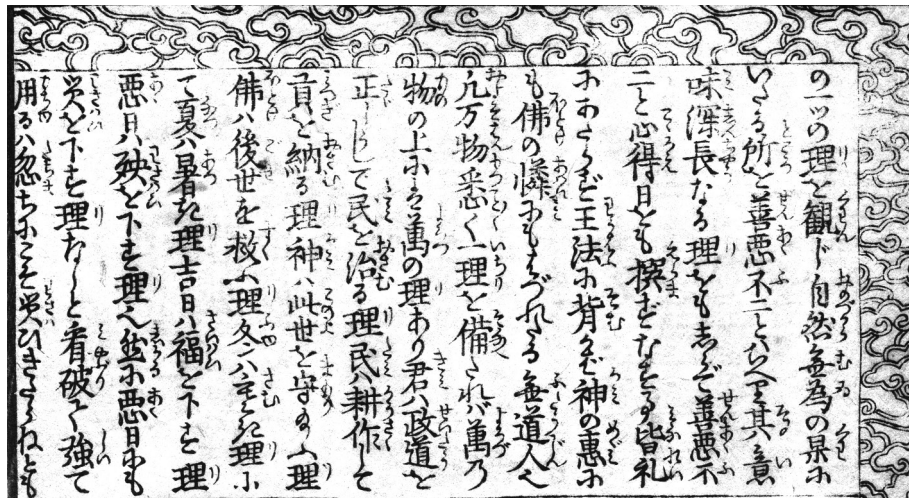 の一ツの理を観じ自然無為の果に
いたる所を善悪不二といへり其意
味深長なる理をもしらで善悪不
二と心得日をも撰ずなせる皆礼
にあたらず王法に背かば神の恵に
も佛の憐にもはづれたる無道人也
凡万物悉く一理を備ざれバ萬乃
物の上に又萬の理あり君ハ政道を
正しうして民を治る理民ハ耕作して
貢を納る理神ハ此世を守給ふ理
佛ハ後世を救ふ理冬ハさむき理に
て夏ハ暑き理吉日ハ福を下す理
悪日ハ殃を下す理也然に悪日にも
災を下す理なしと看破て強て
用るハ忽ちにこそ災ひきたらねども